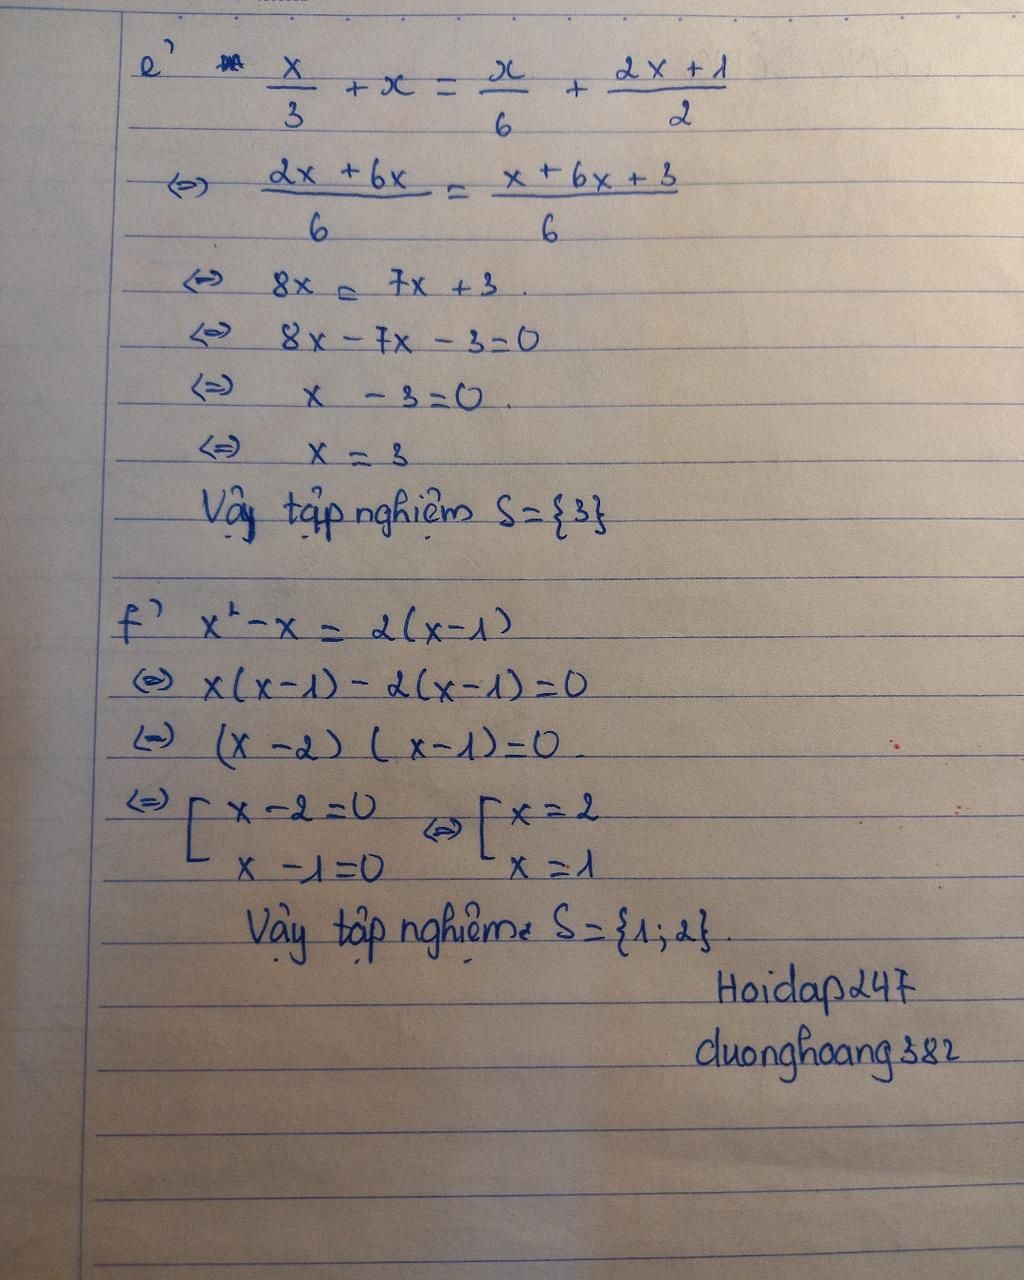 e) x/3 + x = x/6 + (2x + 1)/2
⇔ (2x + 6x)/6 = (x + 6x + 3)/6
⇔ 8x = 7x + 3.
⇔ 8x - 7x - 3 = 0
⇔ x - 3 = 0.
⇔ x = 3
Vậy tập nghiệm S = {3}
f) x² - x = 2(x-1)
⇔ x(x-1) - 2(x-1) = 0
⇔ (x - 2) (x-1) = 0.
⇔ [ x - 2 = 0 ⇔ [ x = 2
x - 1 = 0 x = 1
Vậy tập nghiệm S = {1; 2}.
Hoidap247
duonghoang382